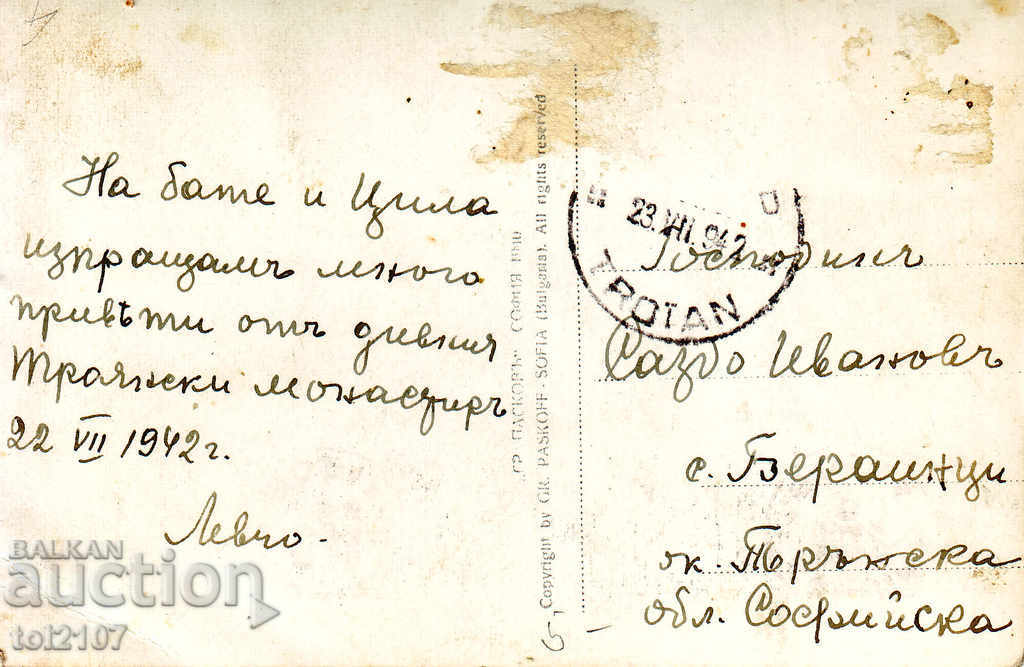 На бате и Цила
изпращамъ много
привѣти отъ дивния
Троянски монастиръ
22 VII 1942 г.
Левчо.
ГР. ПАСКОВЪ СОФИЯ 1940
Copyright by GR. PASKOFF SOFIA (Bulgaria). All rights reserved
23.VII.942
TROIAN
Господинъ
Сазбо Ивановъ
с. Бераинци
ок. Трънска
обл. Софийска
BALKAN
auction
tol2107